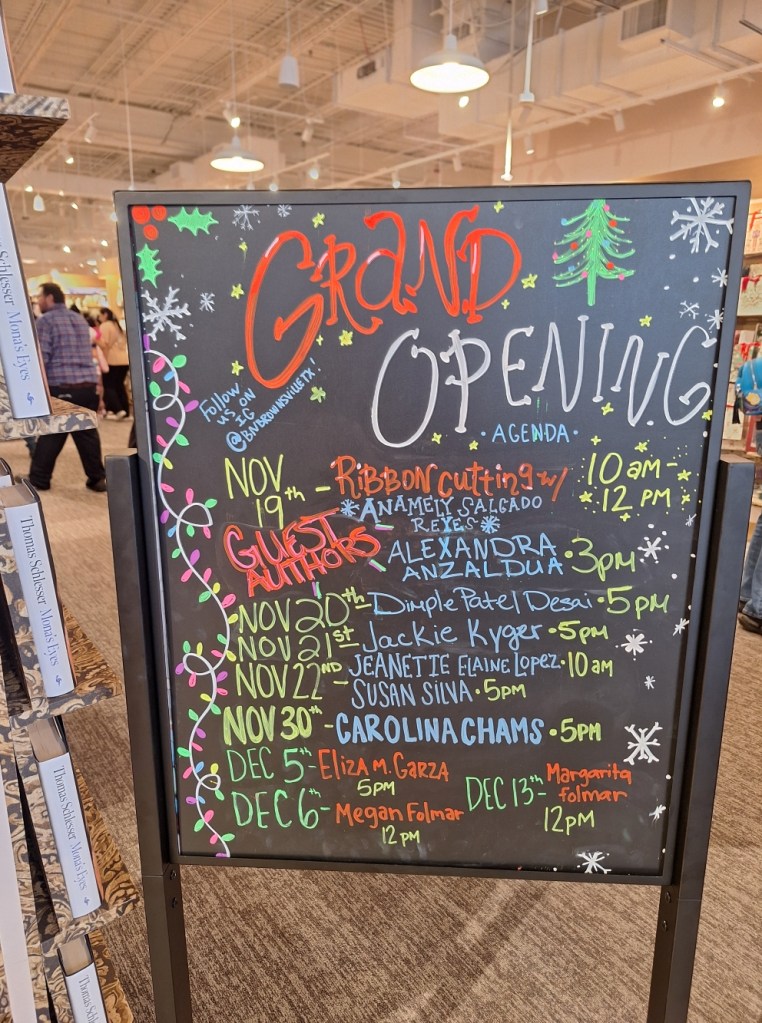 GRAND
OPENING
Follow
us on
IG
@BNBROWNSVILLETX!
· AGENDA ·
NOV 19th - Ribbon Cutting w/ 10 am - 12 PM
*ANAMELY SALGADO
REYES*
GUEST
AUTHORS
ALEXANDRA
ANZALDUA · 3pm
NOV 20th - Dimple Patel Desai · 5pm
NOV 21st - Jackie Kyger · 5pm
NOV 22ND - JEANETTE ELAINE LOPEZ · 10 am
SUSAN SILVA · 5pm
NOV 30th - CAROLINA CHAMS · 5pm
DEC 5th - Eliza M. Garza
5pm
DEC 6th - Megan Folmar
12 pm
DEC 13th - Margarita
folmar
12pm
Schlesser Mona's Eyes
Thomas Schlesser Mona's Eyes
Thomas Schlesser Mona's Eyes
Thomas Schlesser